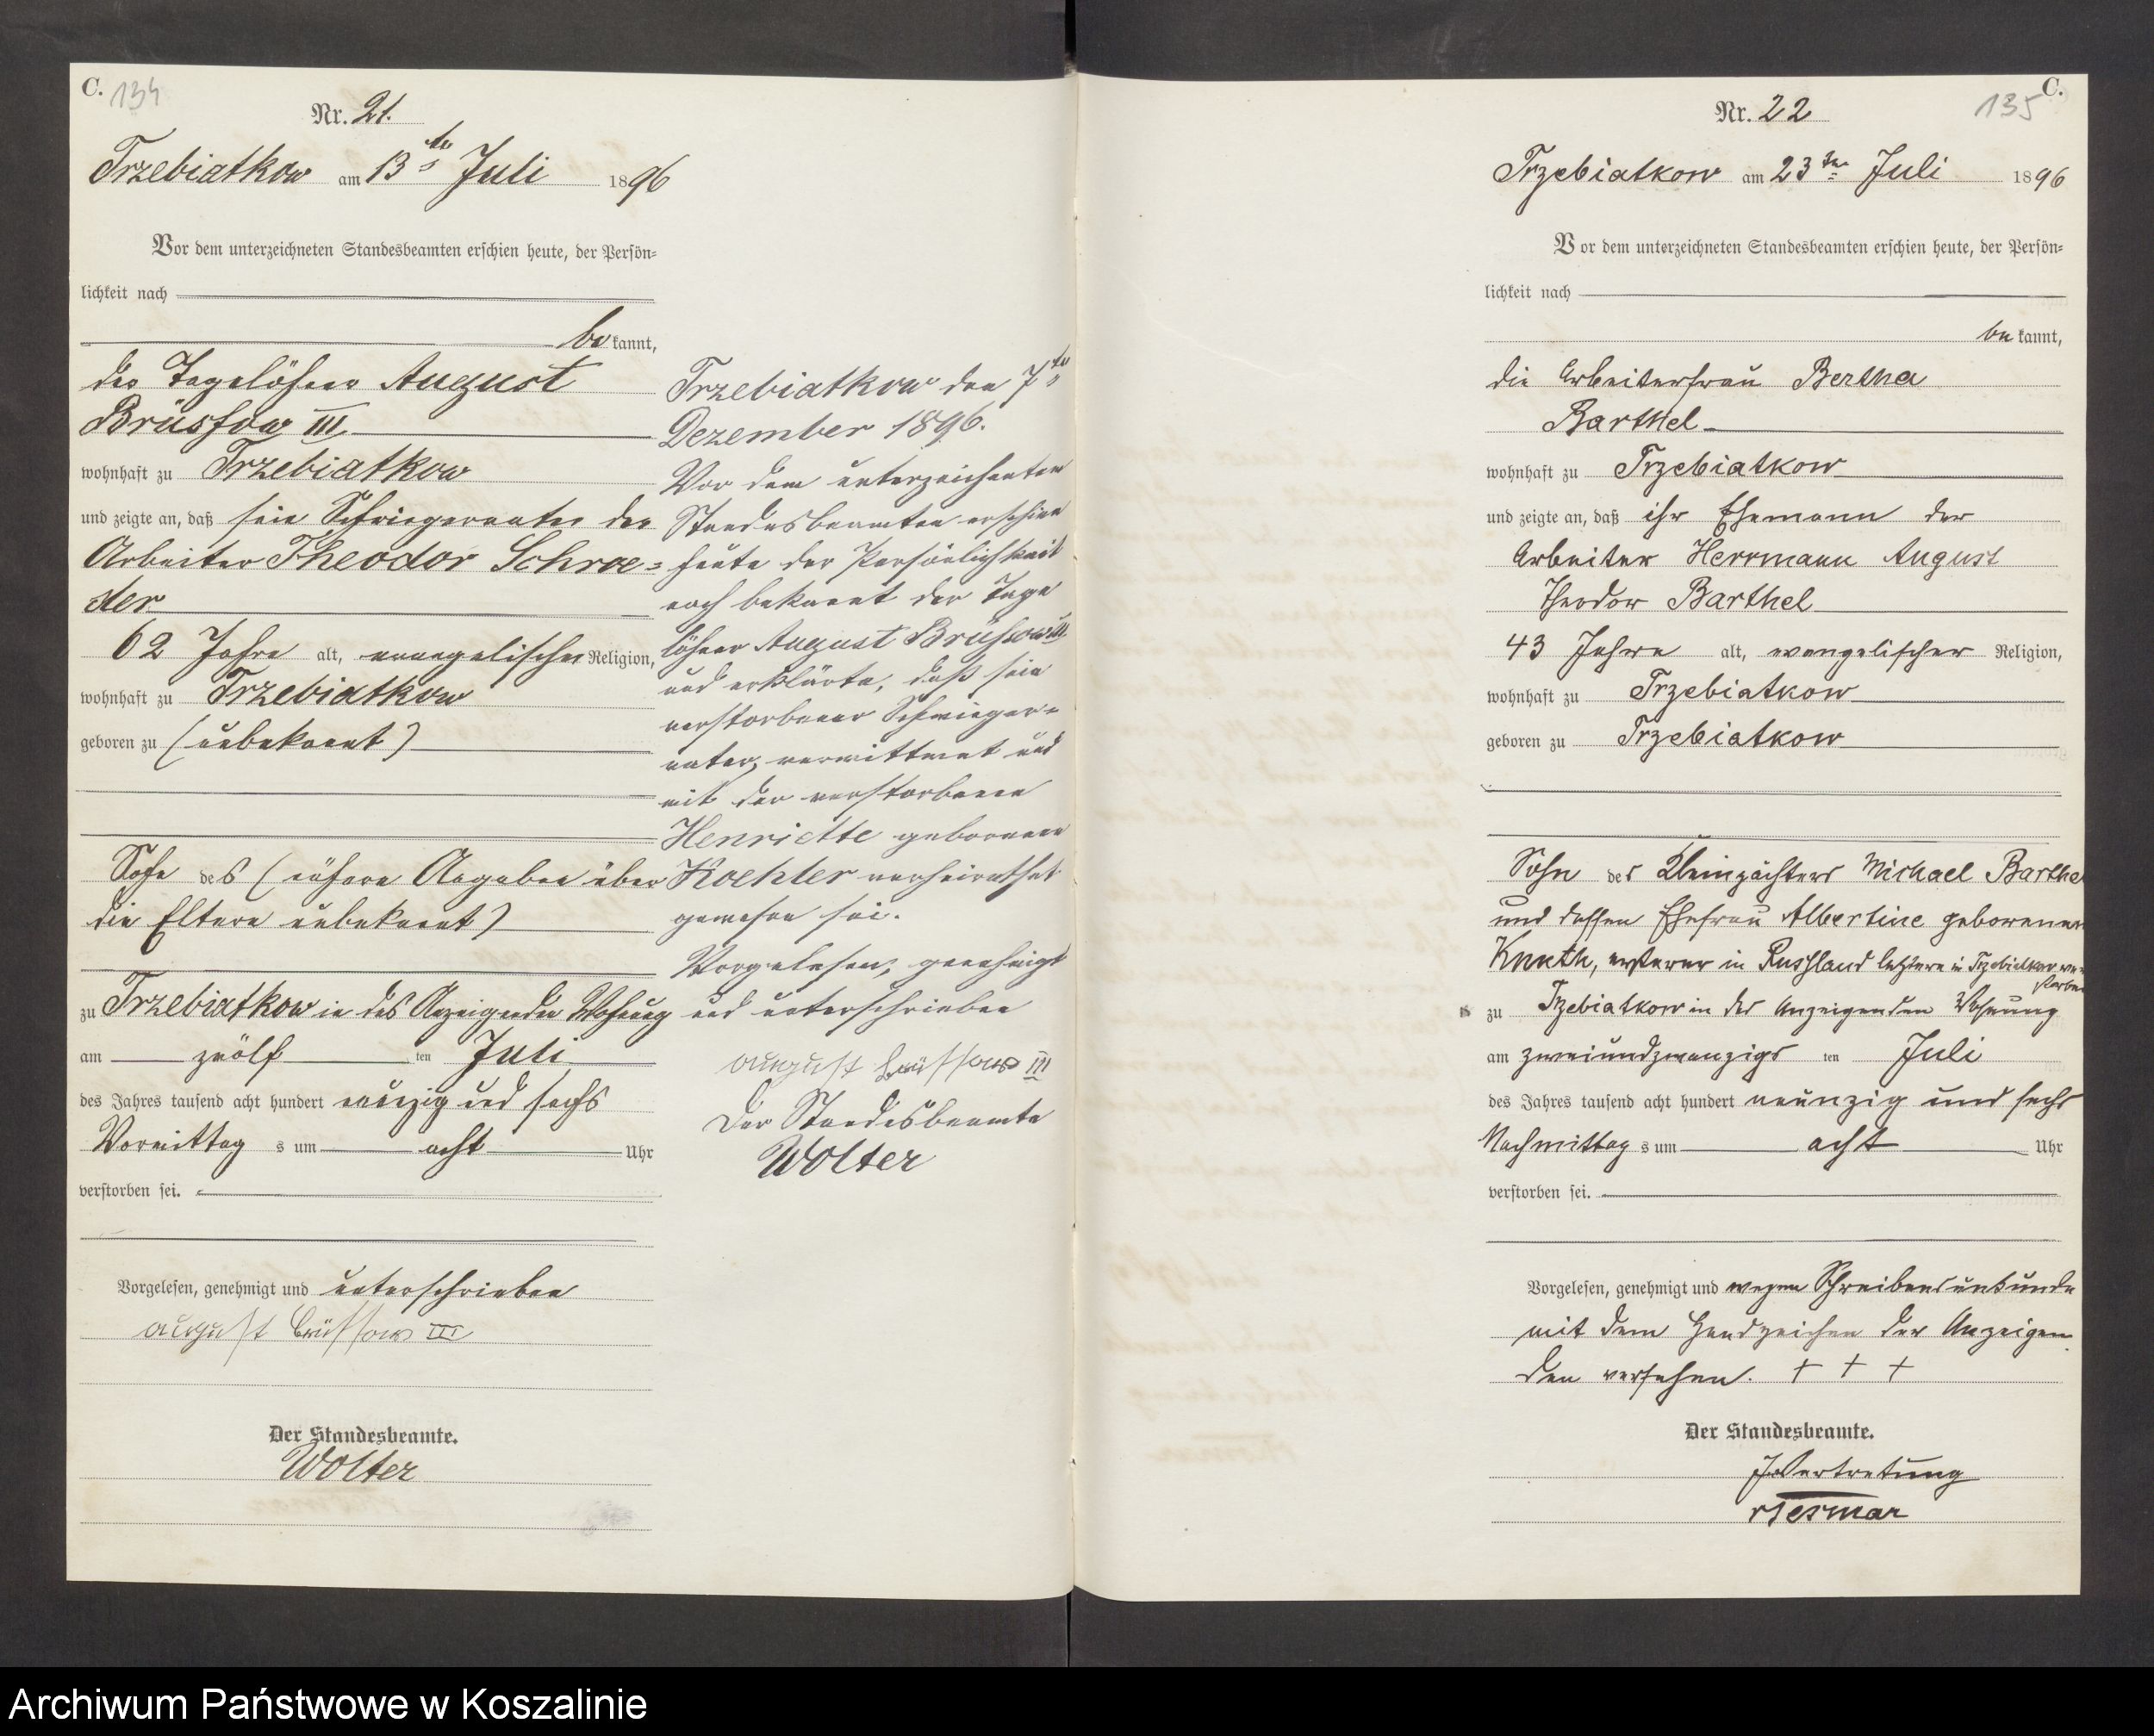 C. 134
Nr. 21.
Trzebiatkow am 13ten Juli 1896
Vor dem unterzeichneten Standesbeamten erschien heute, der Persön-
lichkeit nach
be kannt,
der Tagelöhner August
Brüssow III
wohnhaft zu Trzebiatkow
und zeigte an, daß sein Schwiegervater der
Arbeiter Theodor Schroe-
der
62 Jahre alt, evangelischer Religion,
wohnhaft zu Trzebiatkow
geboren zu (unbekannt)
Sohn des (nähere Angaben über
die Eltern unbekannt)
zu Trzebiatkow in des Anzeigenden Wohnung
am zwölf ten Juli
des Jahres tausend acht hundert neunzig und sechs
Vormittag s um acht Uhr
verstorben sei.
Vorgelesen, genehmigt und unterschrieben
august brüssow III
Der Standesbeamte.
Wolter
Trzebiatkow den 7ten
Dezember 1896.
Vor dem unterzeichneten
Standesbeamten erschien
heute der Persönlichkeit
nach bekannt der Tage
löhner August Brüssow III
und erklärte, daß sein
verstorbener Schwieger-
vater, verwittwet und
mit der verstorbenen
Henriette geborenen
Koehler verheirathet
gewesen sei.
Vorgelesen, genehmigt
und unterschrieben
august brüssow III
Der Standesbeamte
Wolter
135 C.
Nr. 22
Trzebiatkow am 23ten Juli 1896
Vor dem unterzeichneten Standesbeamten erschien heute, der Persön-
lichkeit nach
be kannt,
die Arbeiterfrau Bertha
Barthel
wohnhaft zu Trzebiatkow
und zeigte an, daß ihr Ehemann der
Arbeiter Herrmann August
Theodor Barthel
43 Jahre alt, evangelischer Religion,
wohnhaft zu Trzebiatkow
geboren zu Trzebiatkow
Sohn des Kleinpächters Michael Barthel
und dessen Ehefrau Albertine geborenen
Knuth, ersterer in Russland letztere in Trzebiatkow ver-
storben
zu Trzebiatkow in der Anzeigenden Wohnung
am zweiundzwanzigs ten Juli
des Jahres tausend acht hundert neunzig und sechs
Nachmittag s um acht Uhr
verstorben sei.
Vorgelesen, genehmigt und wegen Schreibensunkunde
mit dem Handzeichen der Anzeigen
den versehen. + + +
Der Standesbeamte.
In Vertretung
Archiwum Państwowe w Koszalinie